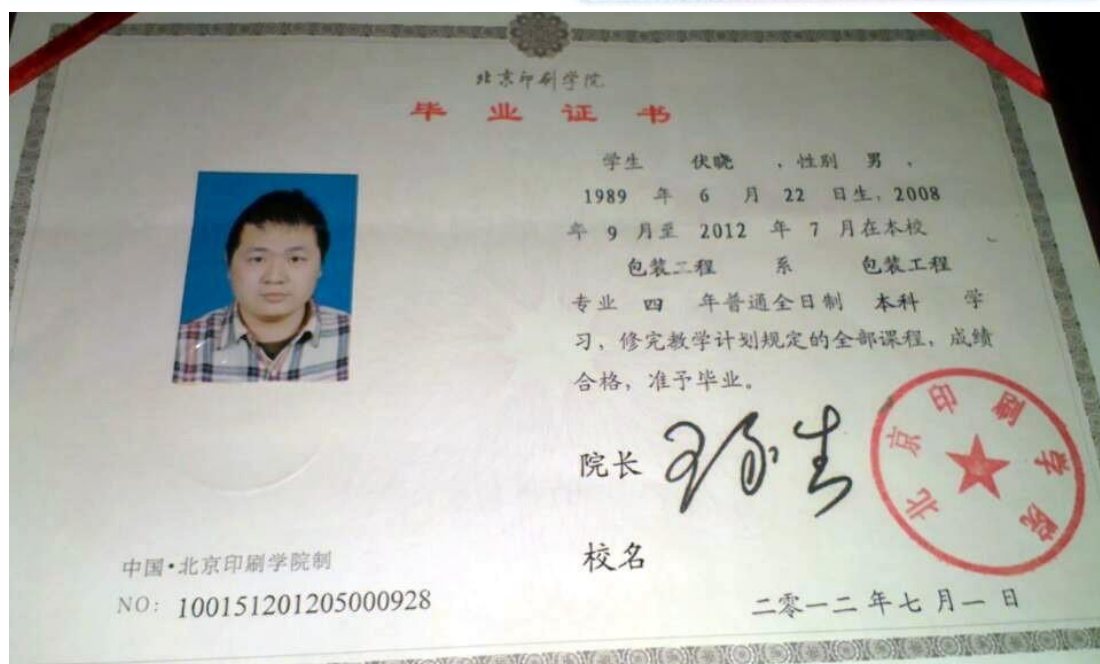 北京印刷学院
毕业证书
学生 伏晓 ,性别 男 ,
1989 年 6 月 22 日生, 2008
年 9 月至 2012 年 7 月在本校
包装工程 系 包装工程
专业 四 年普通全日制 本科 学
习,修完教学计划规定的全部课程,成绩
合格,准予毕业。
院长
北京印刷学院
校名
中国·北京印刷学院制
NO: 100151201205000928
二零一二年七月一日